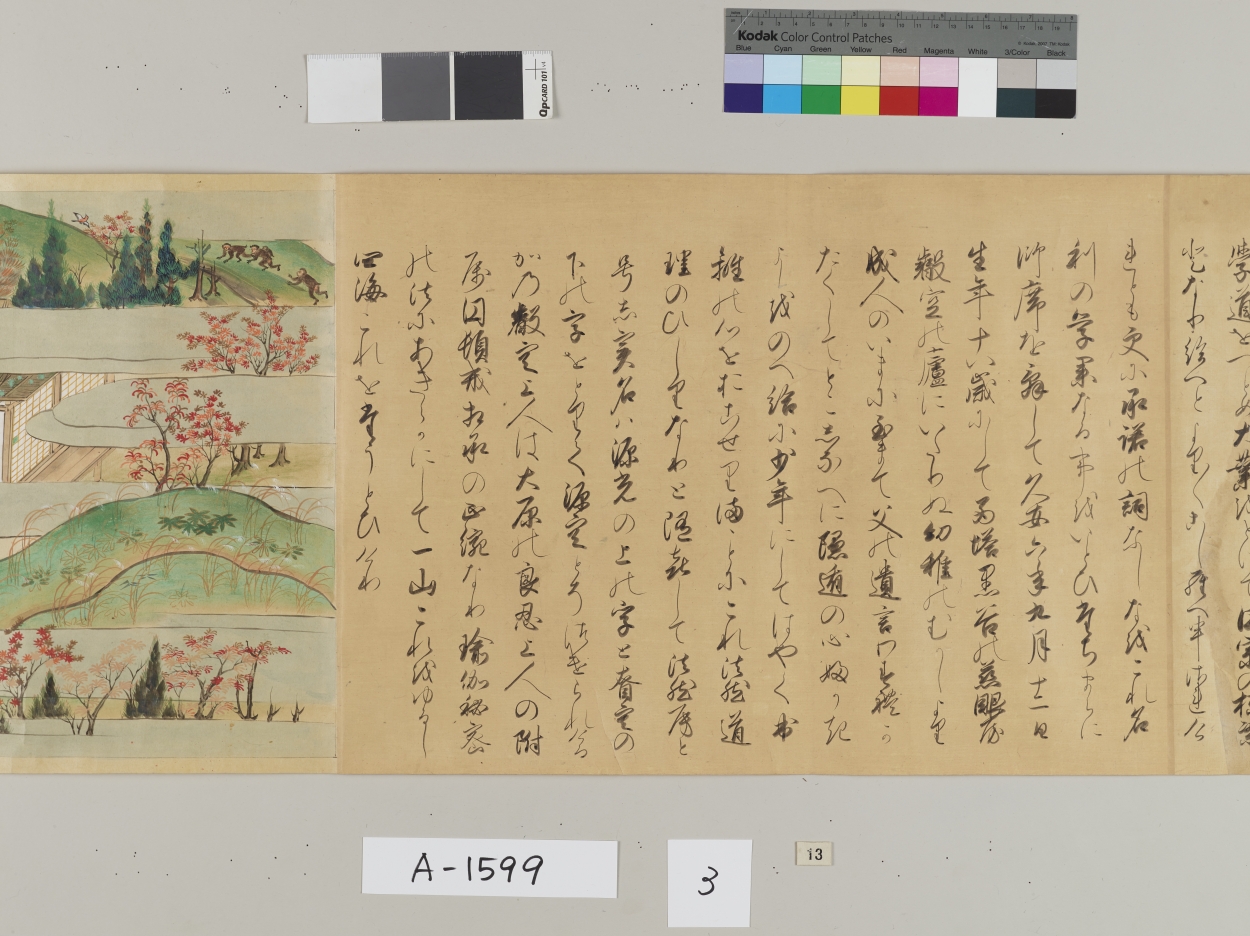 學道をつとめ大業をとけて円宗の棟梁
となり給へとより〱こしらへ申
れとも更に承諾の詞なしなをこれ名
利の学業なる事をいとひたちまちに
師席を辞して久安六年九月十二日
生年十八歳にして西塔黒谷の慈眼房
叡空の廬にいたりぬ幼稚のむかしより
成人のいまに至まて父の遺言わすれか
たくしてとこしなへに隠遁の心ふかき
よしをのへ給に少年にしてはやく出
離の心をおこせりまことにこれ法然道
理のひしりなりと随喜して法然房と
号し実名は源光の上の字と叡空の
下の字をとりて源空とそつけられける
かの叡空上人は大原の良忍上人の附
属円頓戒相承の正統なり瑜伽秘密
の法にあきらかにして一山これをゆるし
四海これをたうとひけり
Kodak Color Control Patches
Blue Cyan Green Yellow Red Magenta White 3/Color Black
QpCARD 101
A-1599
3
13